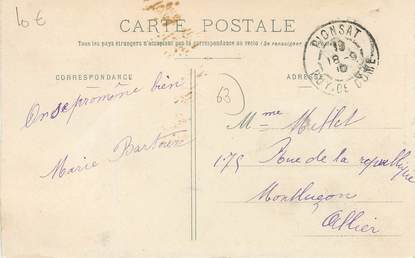 10€
CARTE POSTALE
Tous les pays étrangers n'acceptent pas la correspondance au recto (Se renseigner
PIONSAT
18-9
10
PUY-DE-DOME
CORRESPONDANCE
ADRESSE
63
On se promène bien
Marie
Mme Mullet
175 Rue de la republique
Montluçon
Allier